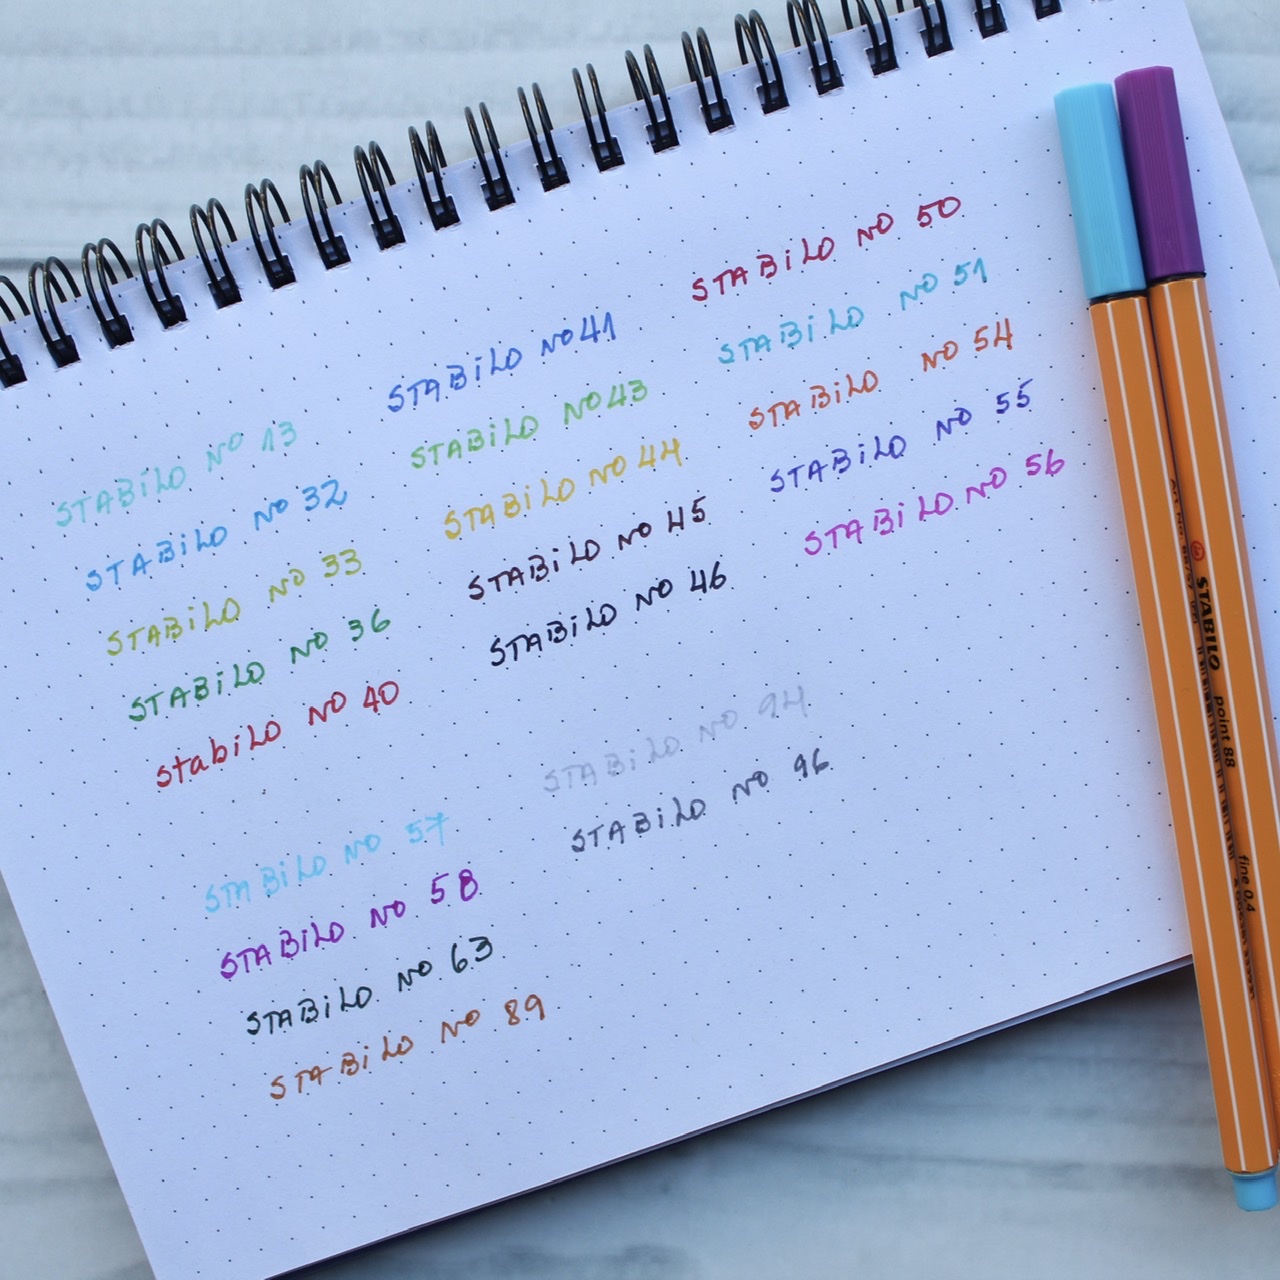 STABiLO NO 13
STABiLO NO 32
STABiLO NO 33
STABiLO NO 36
StabiLO NO 40
STABiLO NO 41
STABiLO NO 43
STABiLO NO 44
STABiLO NO 45
STABiLO NO 46
STABiLO NO 50
STABiLO NO 51
STABiLO NO 54
STABiLO NO 55
STABiLO NO 56
STABiLO NO 57
STABiLO NO 58
STABiLO NO 63
STABiLO NO 89
STABiLO NO 94
STABiLO NO 96
STABILO point 88 fine 0.4